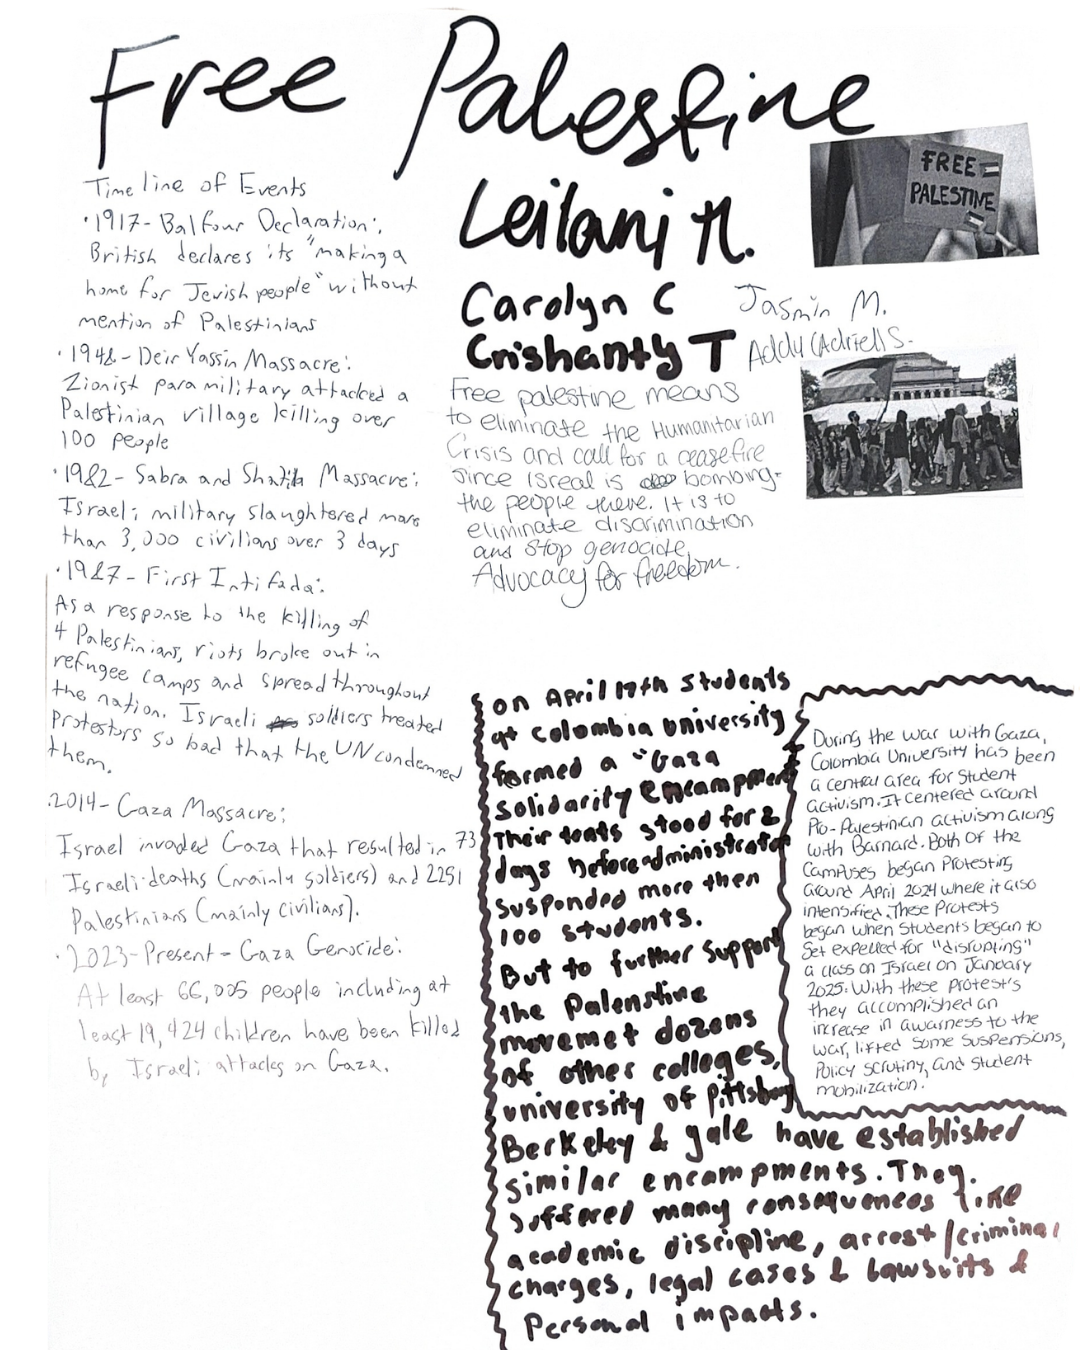 Free Palestine
Leilani M.
Carolyn C
Crishanty T
Jasmin M.
Addy (Adriel) S.
FREE
PALESTINE
Timeline of Events
• 1917 - Balfour Declaration:
British declares its "making a
home for Jewish people" without
mention of Palestinians
• 1948 - Deir Yassin Massacre:
Zionist paramilitary attacked a
Palestinian village killing over
100 people
• 1982 - Sabra and Shatila Massacre:
Israeli military slaughtered more
than 3,000 civilians over 3 days
• 1987 - First Intifada:
As a response to the killing of
4 Palestinians, riots broke out in
refugee camps and spread throughout
the nation. Israeli soldiers treated
protestors so bad that the UN condemned
them.
• 2014 - Gaza Massacre:
Israel invaded Gaza that resulted in 73
Israeli deaths (mainly soldiers) and 2251
Palestinians (mainly civilians).
• 2023 - Present - Gaza Genocide:
At least 66,005 people including at
least 19,424 children have been killed
by Israeli attacks on Gaza.
Free palestine means
to eliminate the Humanitarian
Crisis and call for a ceasefire
since Isreal is bombing
the people there. It is to
eliminate discrimination
and stop genocide.
Advocacy for freedom.
on April 17th students
at Columbia University
formed a "Gaza
Solidarity encampment
Their tents stood for 2
days before administrator
suspended more then
100 students.
But to further support
the Palenstine
movemet dozens
of other colleges,
university of Pittsburg
Berkeley & yale have established
similar encampments. They
suffered many consequences like
academic discipline, arrest/criminal
charges, legal cases & lawsuits &
Personal impacts.
During the war with Gaza,
Colombia University has been
a central area for Student
activism. It centered around
Pro-Palestinian activism along
with Barnard. Both of the
campuses began Protesting
around April 2024 where it also
intensified. These Protests
began when Students began to
get expelled for "disrupting"
a class on Israel on January
2025. With these Protest's
they accomplished an
increase in awarness to the
war, lifted some suspensions,
Policy scrutiny, and student
mobilization.